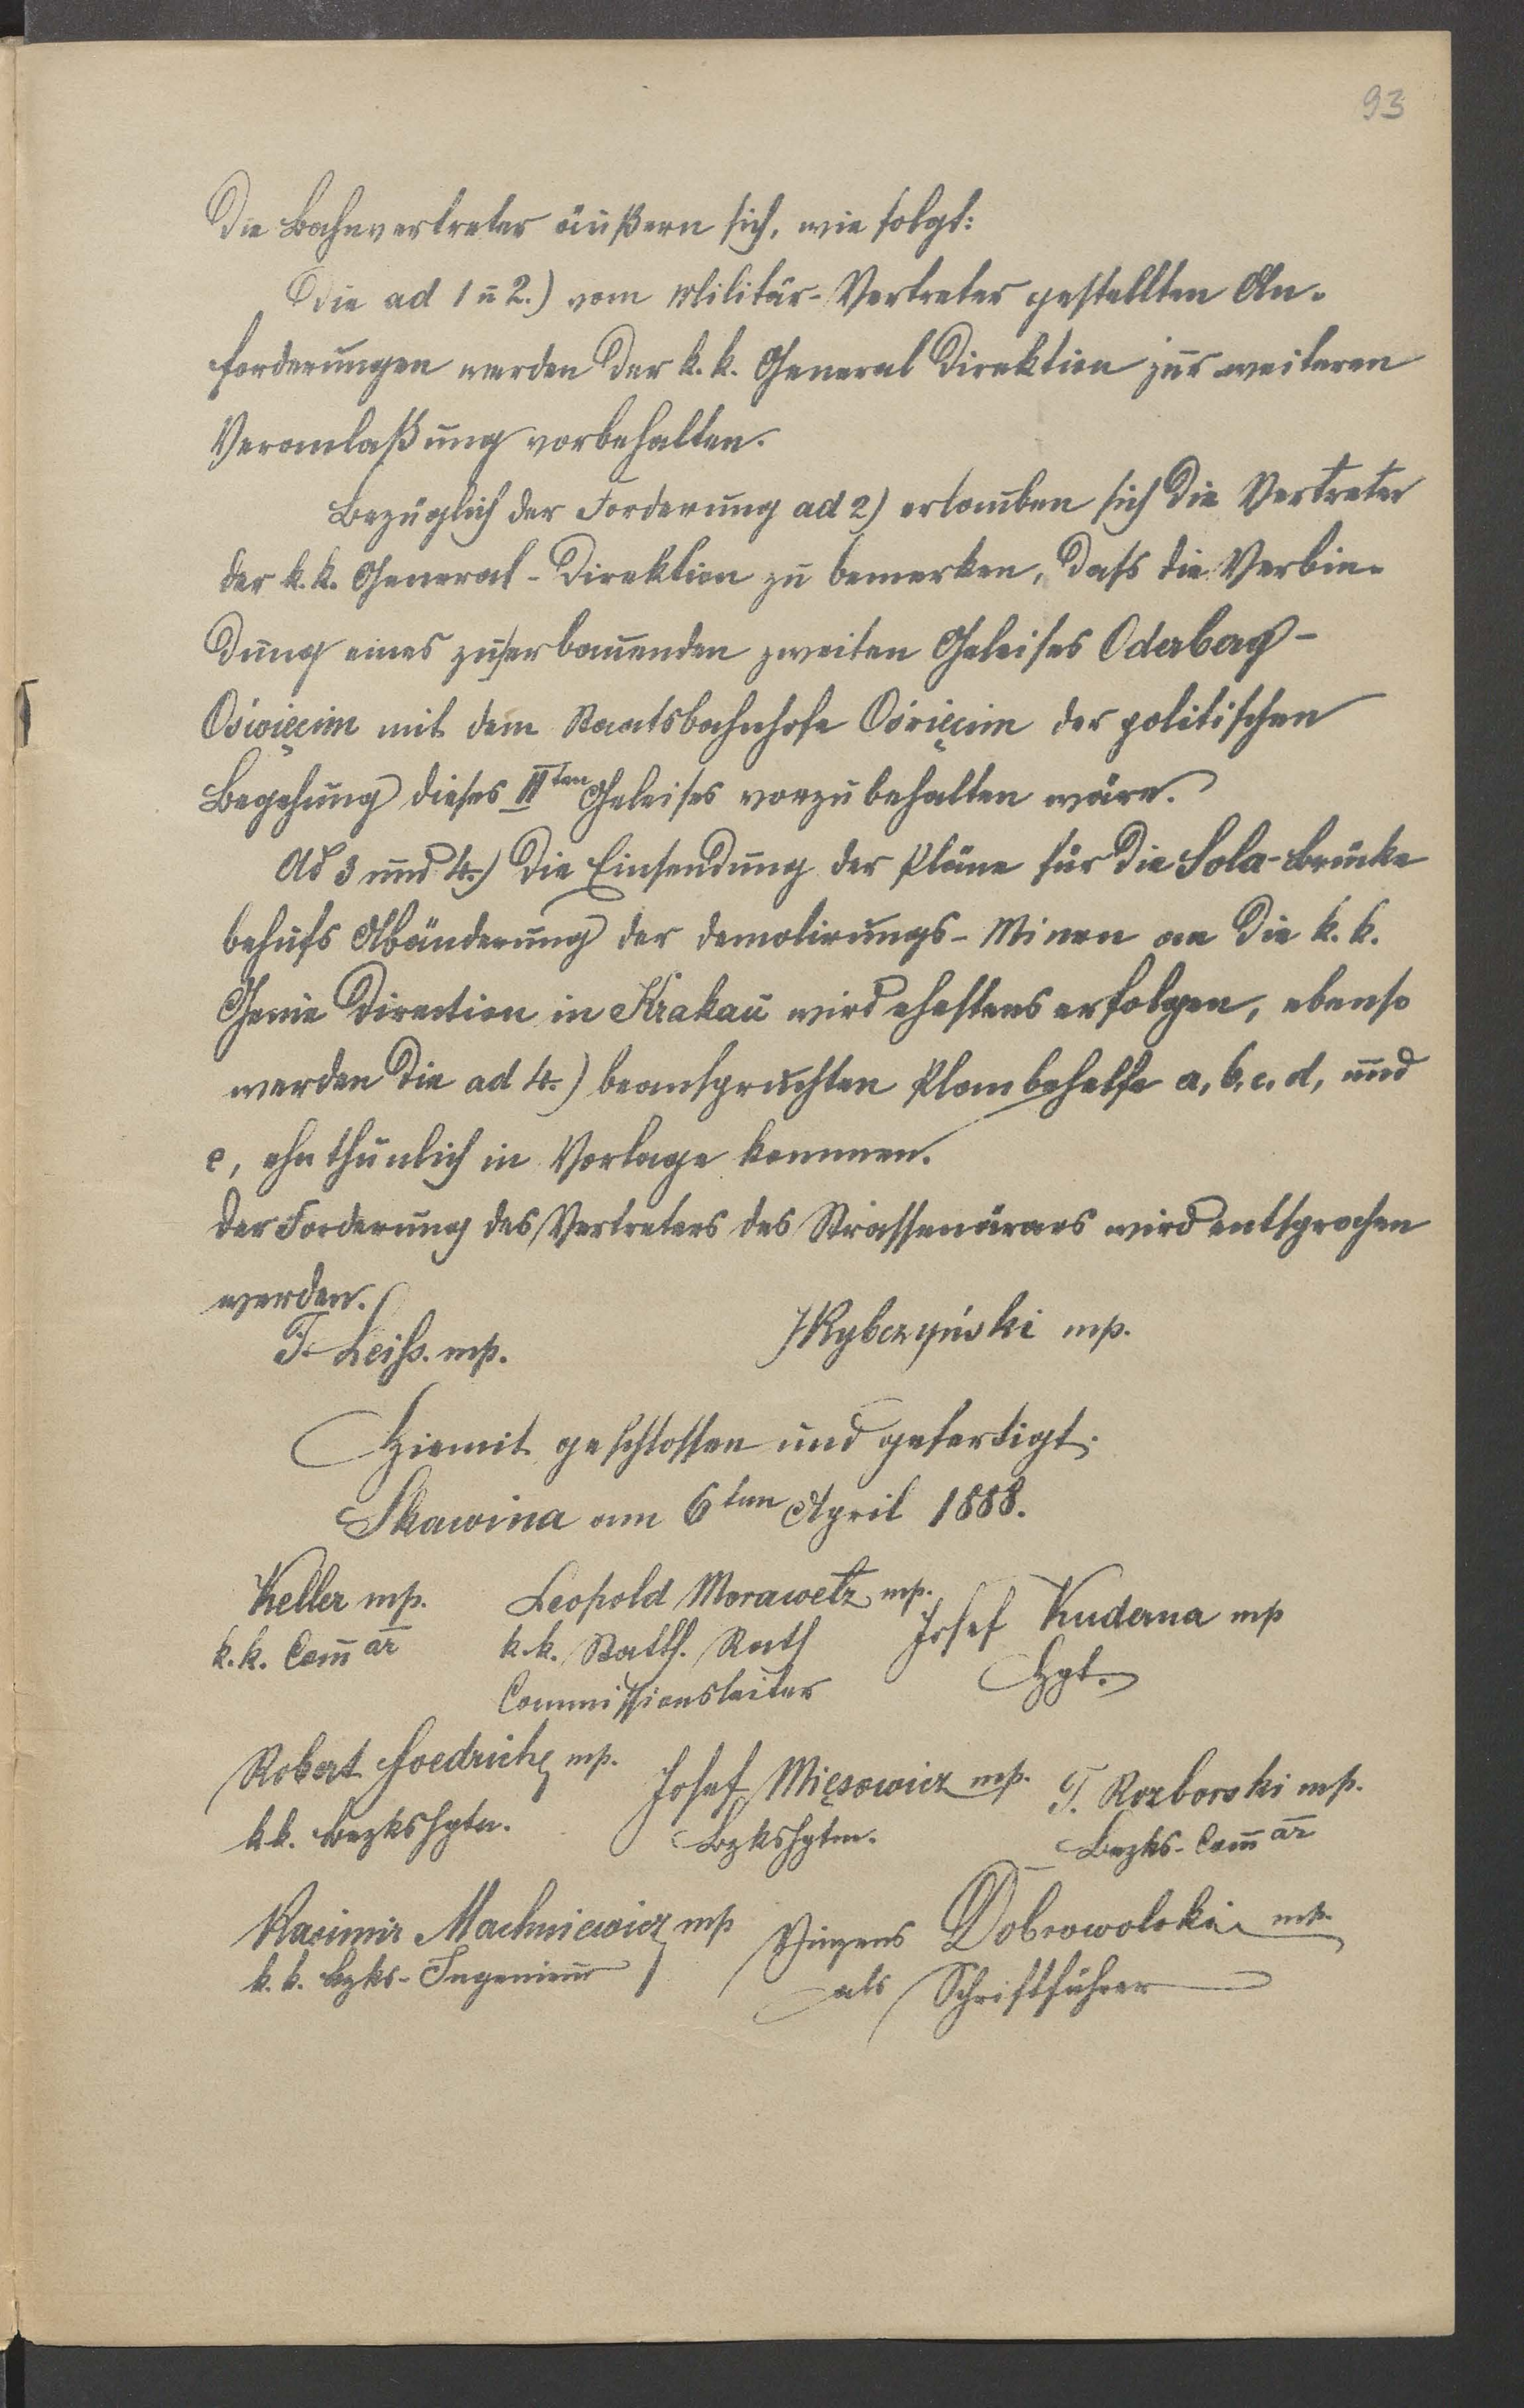 93
Die Bahnvertreter äußern sich, wie folgt:
Die ad 1 u 2.) vom Militär-Vertreter gestellten An-
forderungen werden der k. k. General Direktion zur weiteren
Veranlaßung vorbehalten.
Bezüglich der Forderung ad 2) erlauben sich die Vertreter
der k. k. General-Direktion zu bemerken, dass die Verbin-
dung eines zu erbauenden zweiten Geleises Oderberg-
Oświęcim mit dem Staatsbahnhofe Oświęcim der politischen
Begehung dieses IIten Geleises vorzubehalten wäre.
Ad 3 und 4.) Die Einsendung der Pläne für die Sola-Brücke
behufs Abänderung der Demolirungs-Minen an die k. k.
Genie Direction in Krakau wird ehestens erfolgen, ebenso
werden die ad 4.) beanspruchten Planbehelfe a, b, c, d, und
e, ehethunlich in Vorlage kommen.
Der Forderung des Vertreters des Strassenärars wird entsprochen
werden.
F. Leiss. mp. JRybczyński mp.
Hiemit geschlossen und gefertigt.
Skawina am 6ten April 1888.
Keller mp. Leopold Morawetz mp. Josef Kuderna mp
k. k. Com̄är k. k. Statth. Rath Hptm.
Commissionsleiter
Robert mp. Josef Mięsowicz mp. T. Rozborski mp.
k. k. Bezkshptm. Bzkshptm. Bezks-Com̄är
Kasimir Machniewicz mp Vinzens Dobrowolski mp.
k. k. Bzks-Ingenieur als Schriftführer